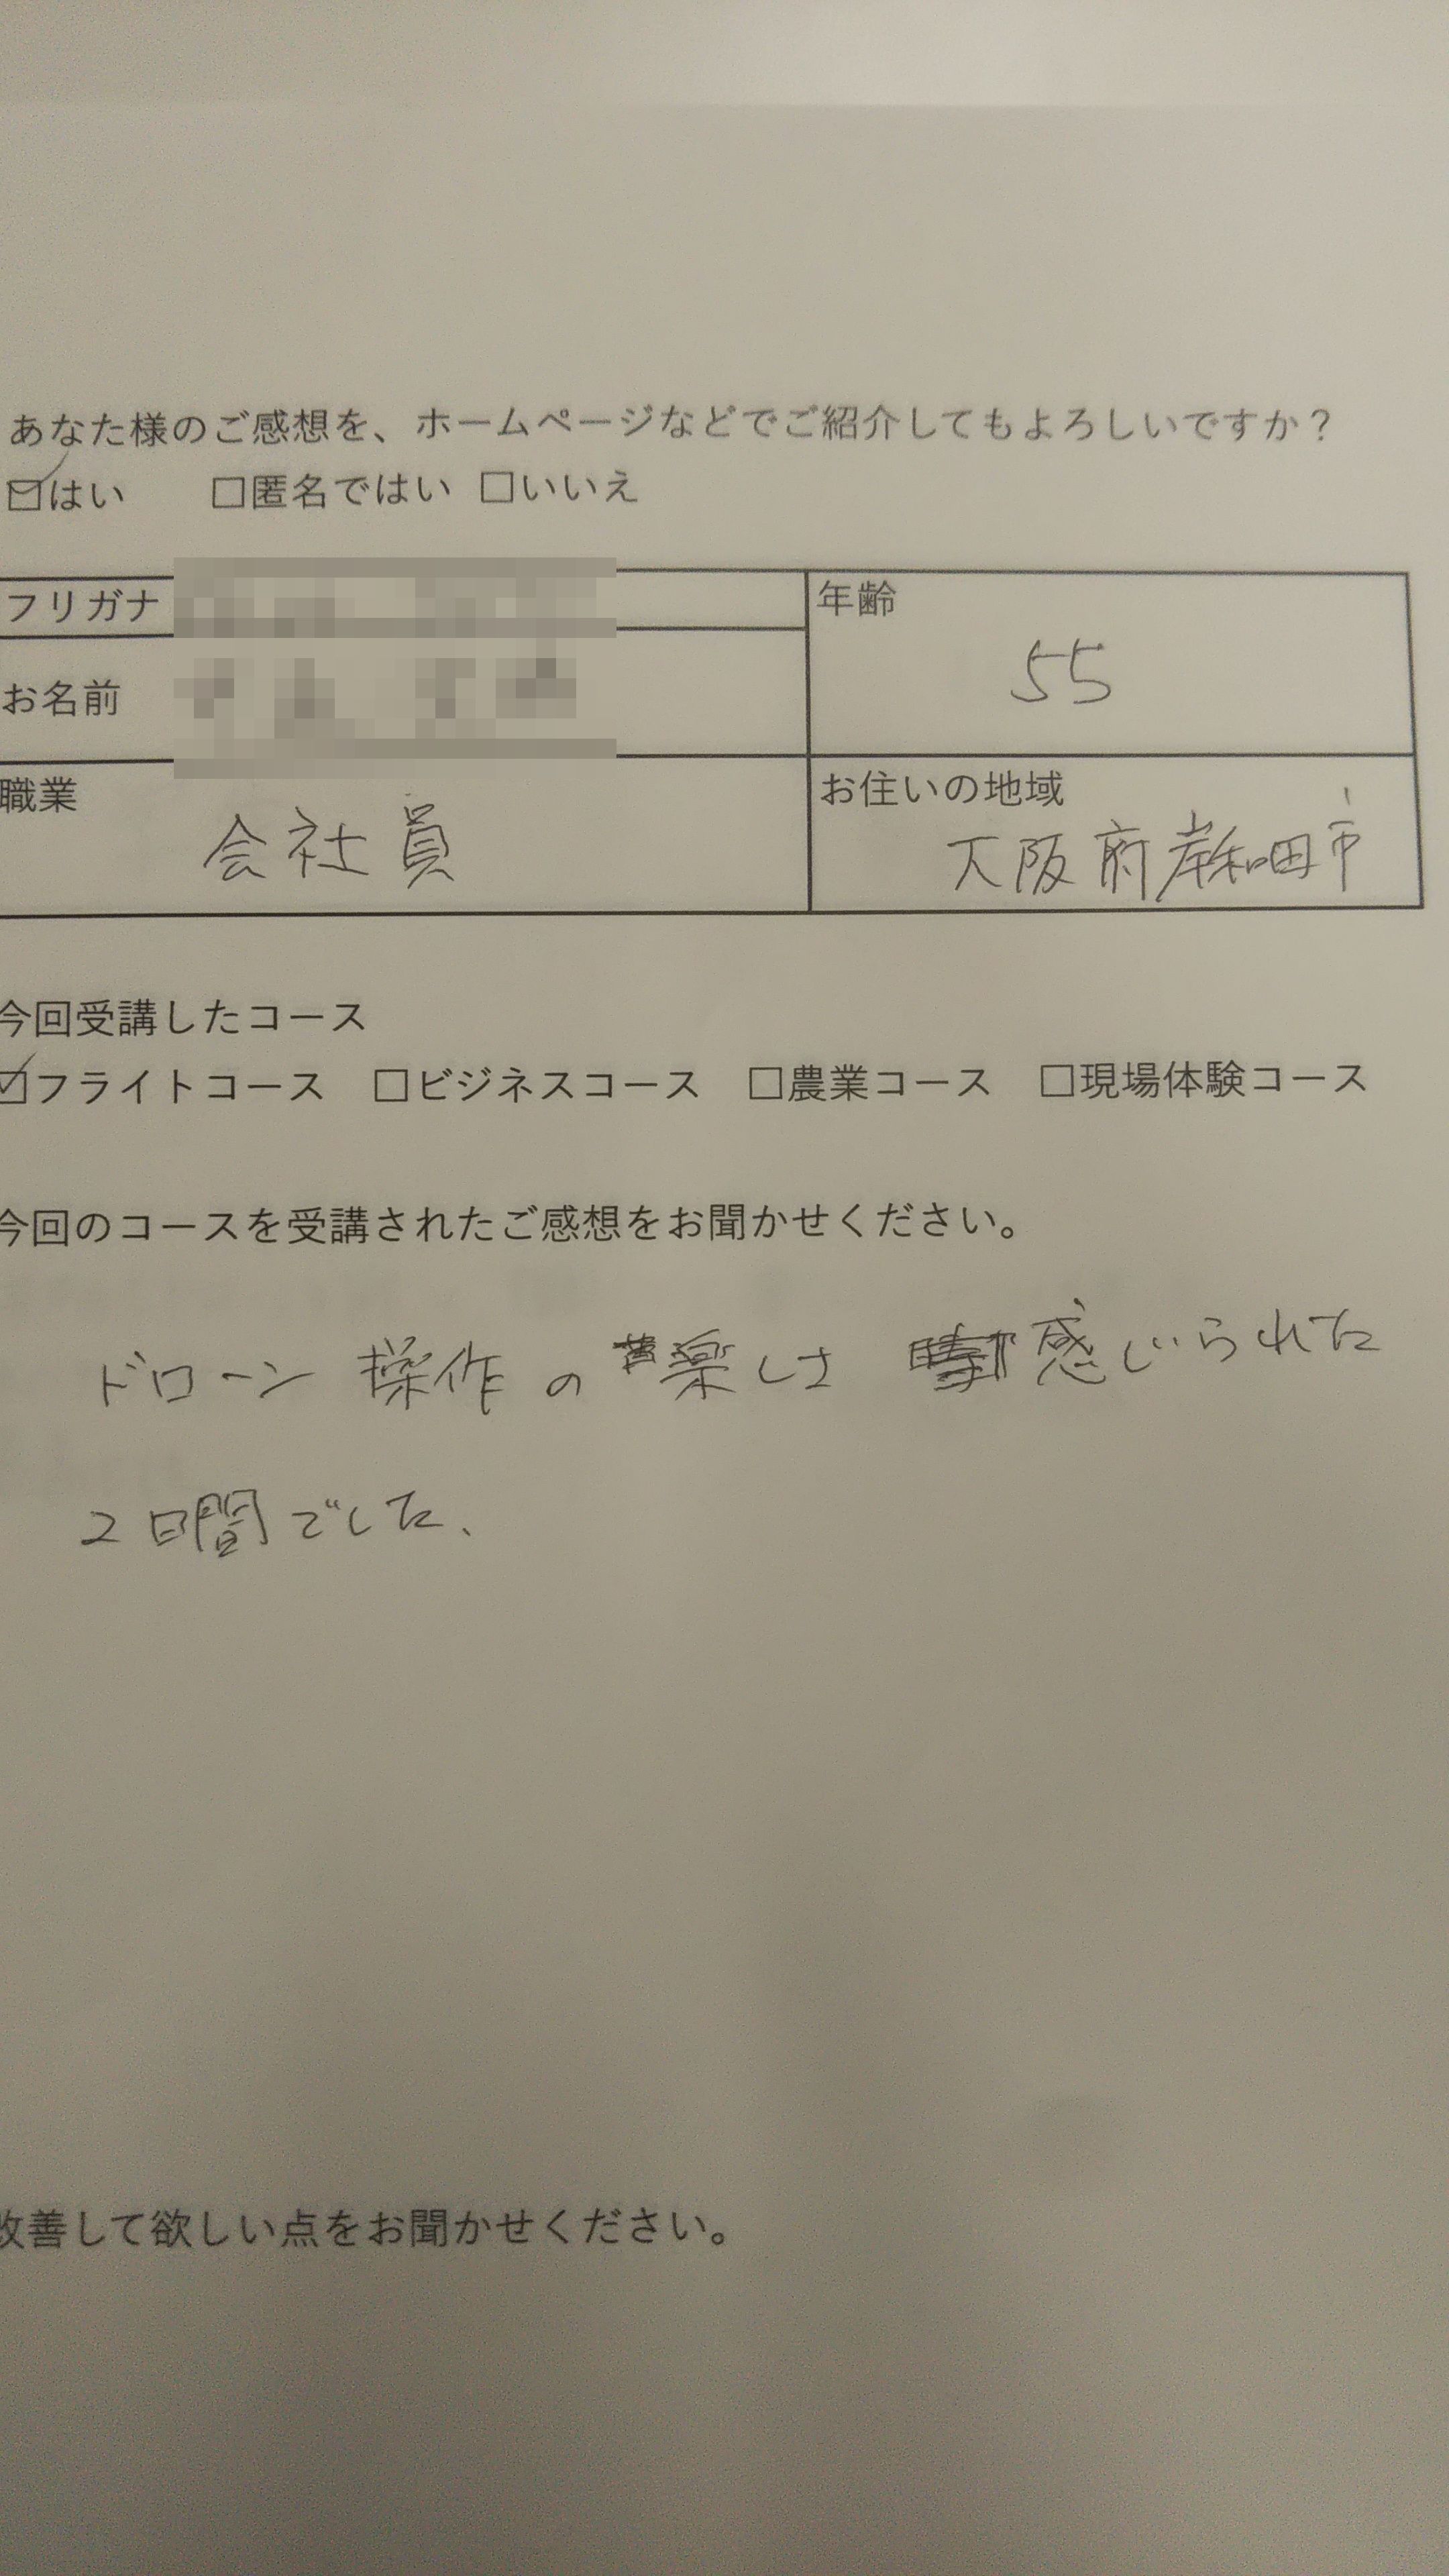 あなた様のご感想を、ホームページなどでご紹介してもよろしいですか？
☑はい　□匿名ではい　□いいえ
フリガナ
お名前
年齢
55
職業
会社員
お住いの地域
大阪府岸和田市
今回受講したコース
☑フライトコース　□ビジネスコース　□農業コース　□現場体験コース
今回のコースを受講されたご感想をお聞かせください。
ドローン操作の楽しさ 感じられた
2日間でした、
改善して欲しい点をお聞かせください。